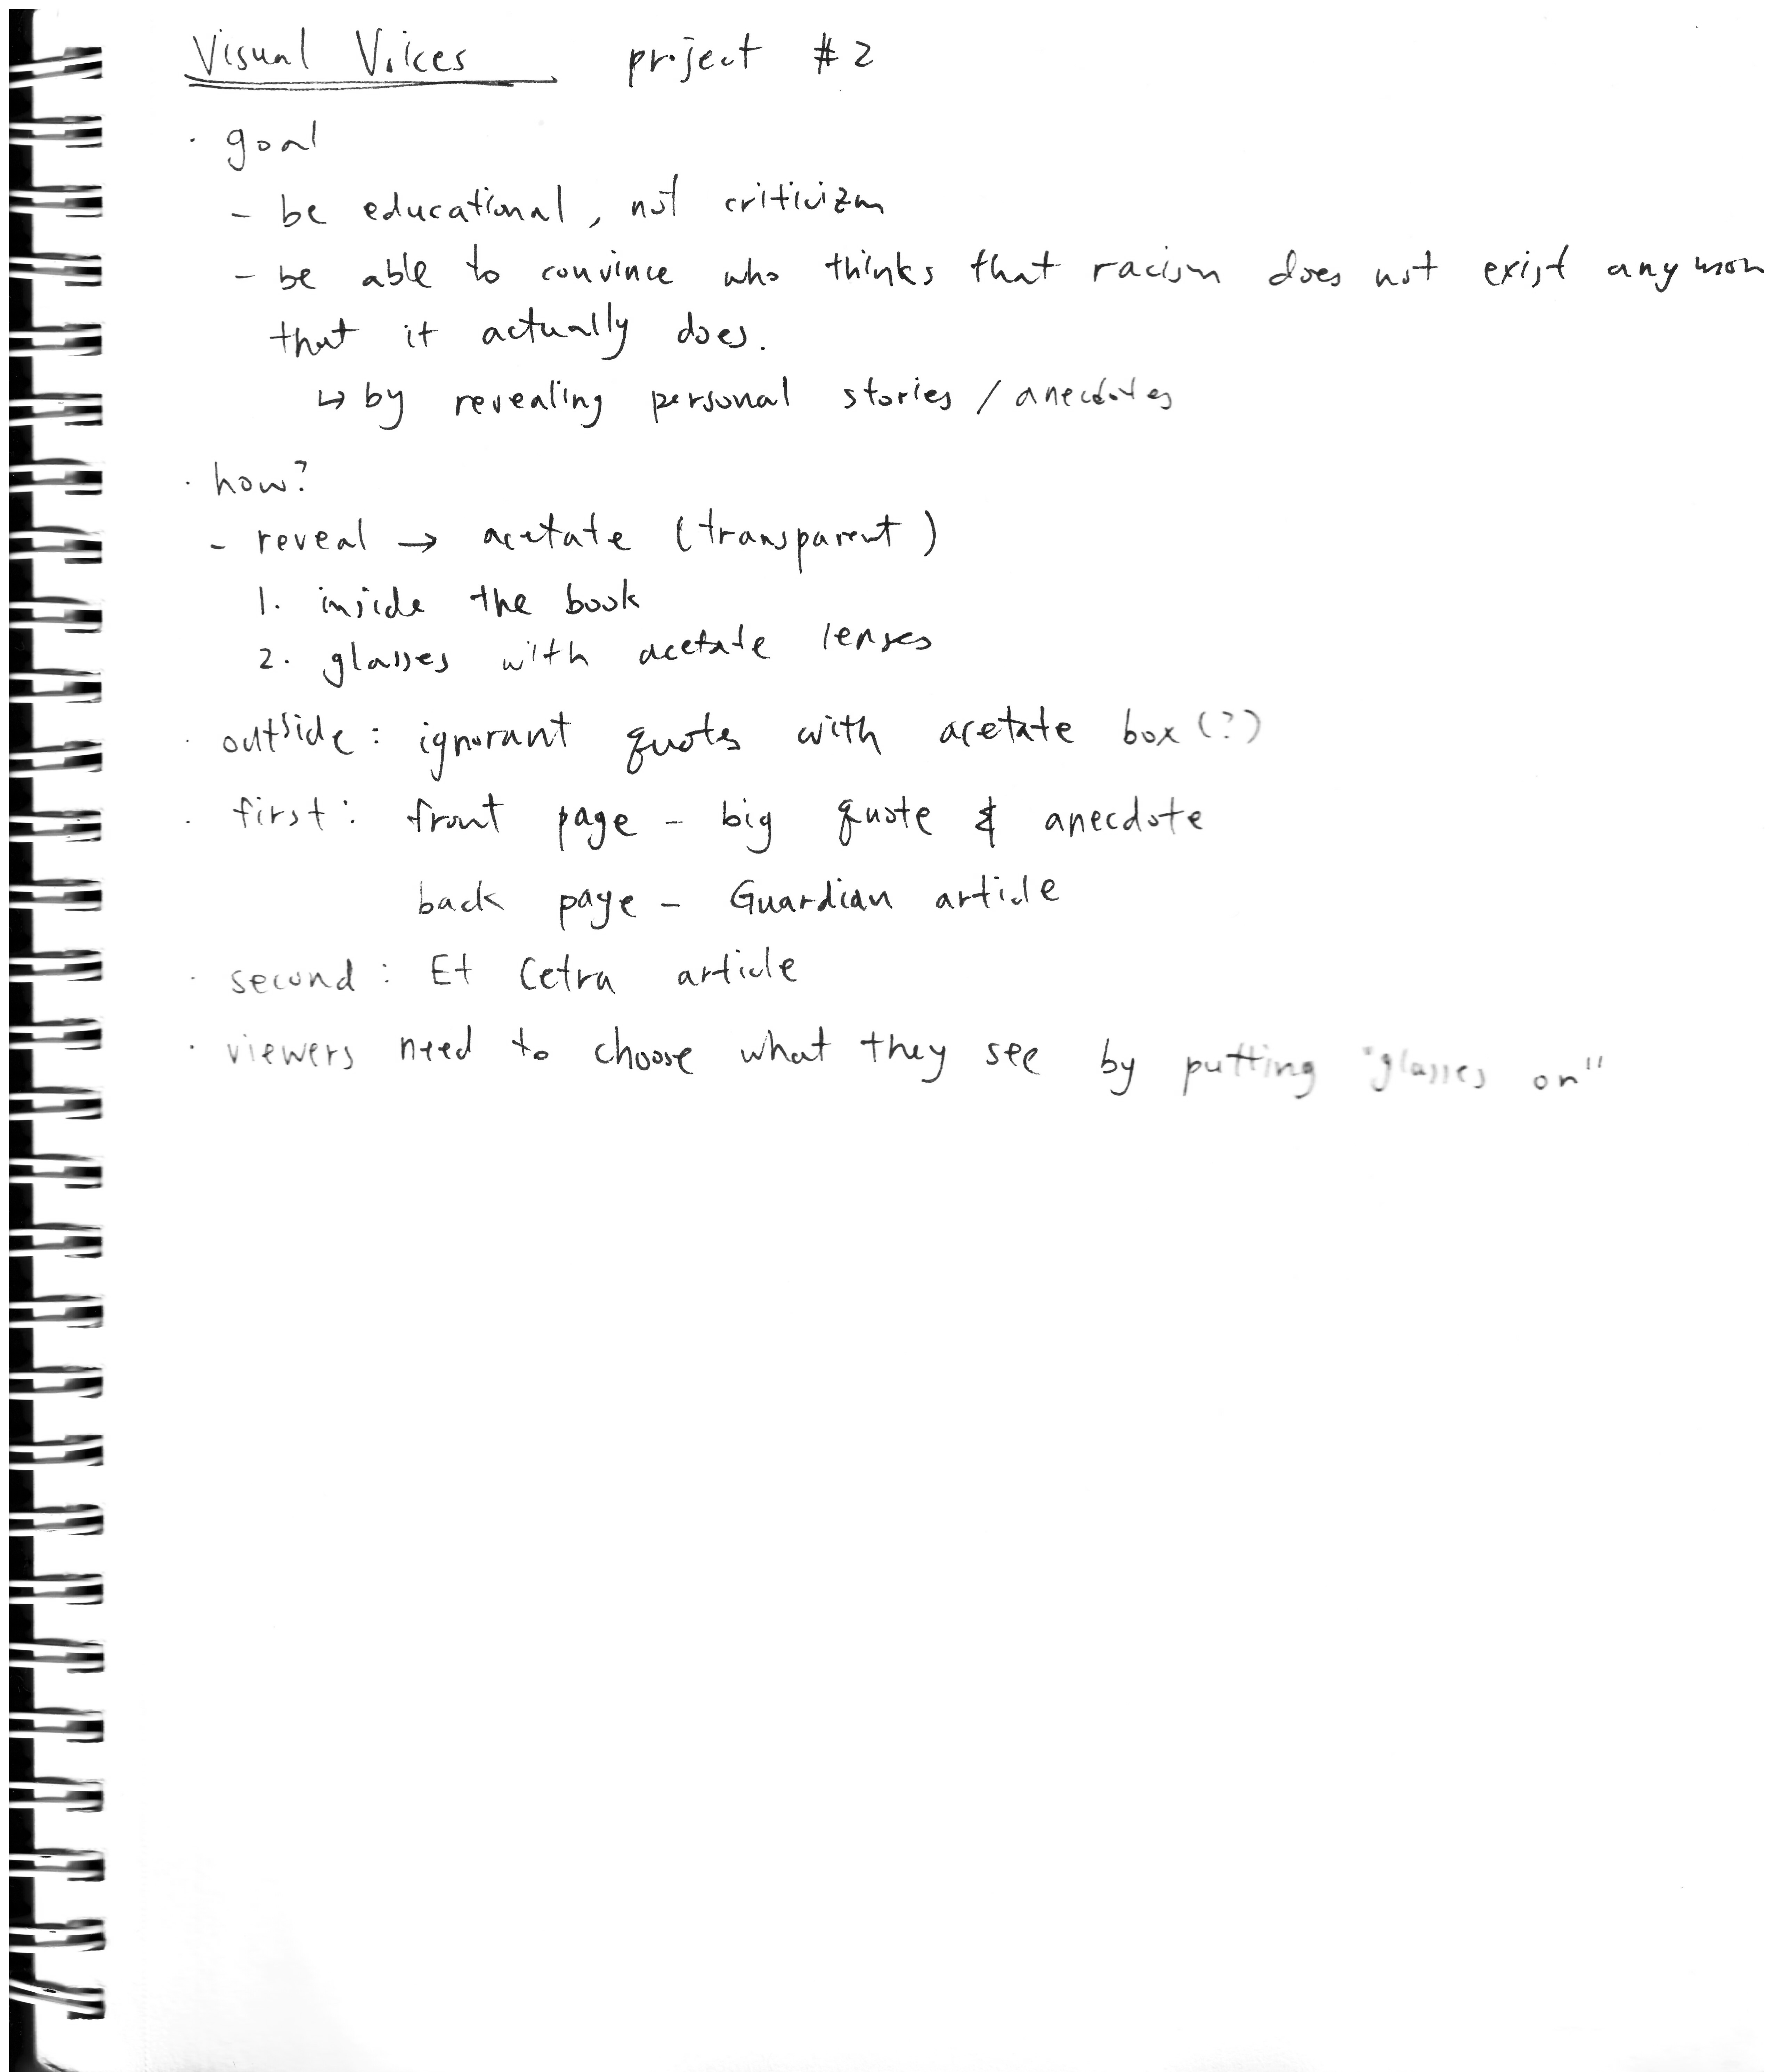 Visual Voices project #2
· goal
- be educational, not criticizm
- be able to convince who thinks that racism does not exist anymore
that it actually does.
↳ by revealing personal stories / anecdotes
· how?
- reveal → acetate (transparent)
1. inside the book
2. glasses with acetate lenses
· outside : ignorant quotes with acetate box (?)
· first : front page - big quote & anecdote
back page - Guardian article
· second : Et Cetra article
· viewers need to choose what they see by putting "glasses on"